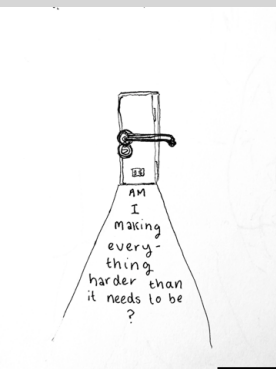 AM
I
making
every-
thing
harder than
it needs to be
?